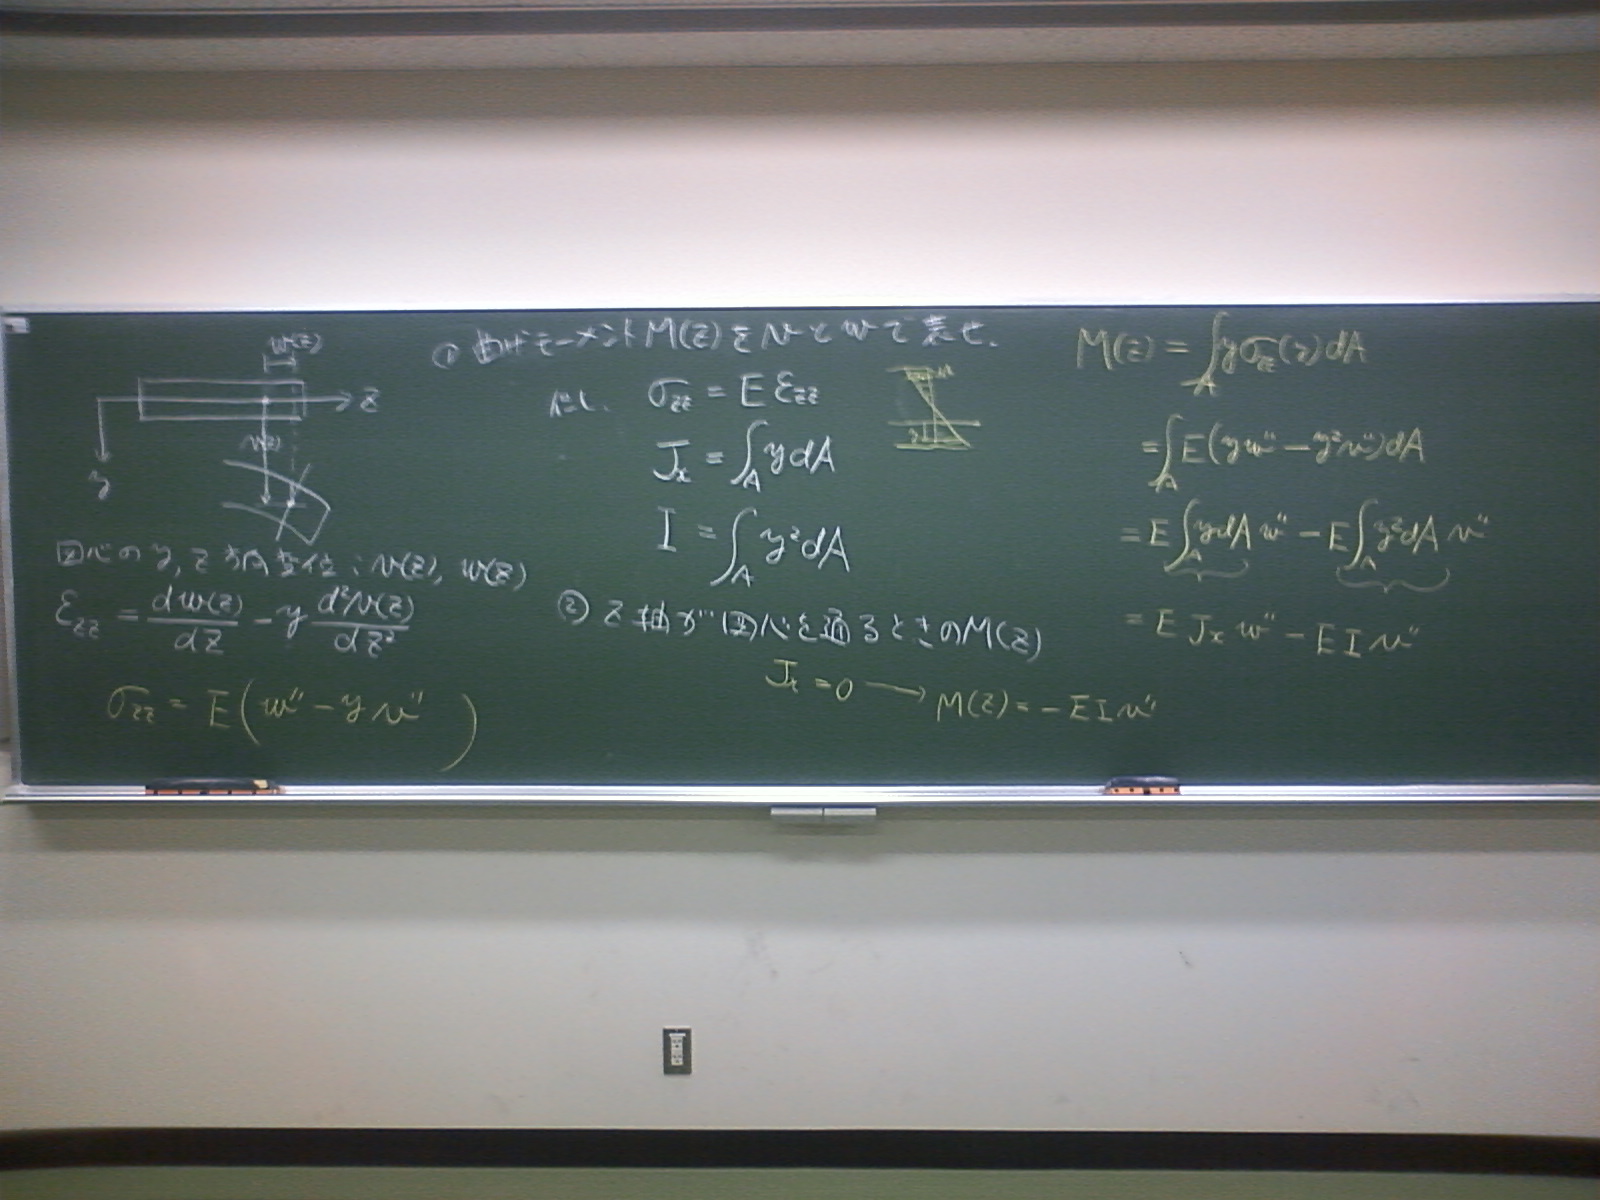 w(z)
z
v(z)
y
図心の y, z 方向変位 : v(z), w(z)
ε_zz = dw(z)/dz - y d²v(z)/dz²
σ_zz = E(w'' - y v'' )
① 曲げモーメントM(z)をvとwで表せ.
但し. σ_zz = E ε_zz
J_x = ∫_A y dA
I = ∫_A y² dA
② z軸が図心を通るときのM(z)
J_x = 0 → M(z) = - E I v''
M(z) = ∫_A y σ_zz(z) dA
= ∫_A E(y w'' - y² v'') dA
= E ∫_A y dA w'' - E ∫_A y² dA v''
= E J_x w'' - E I v''